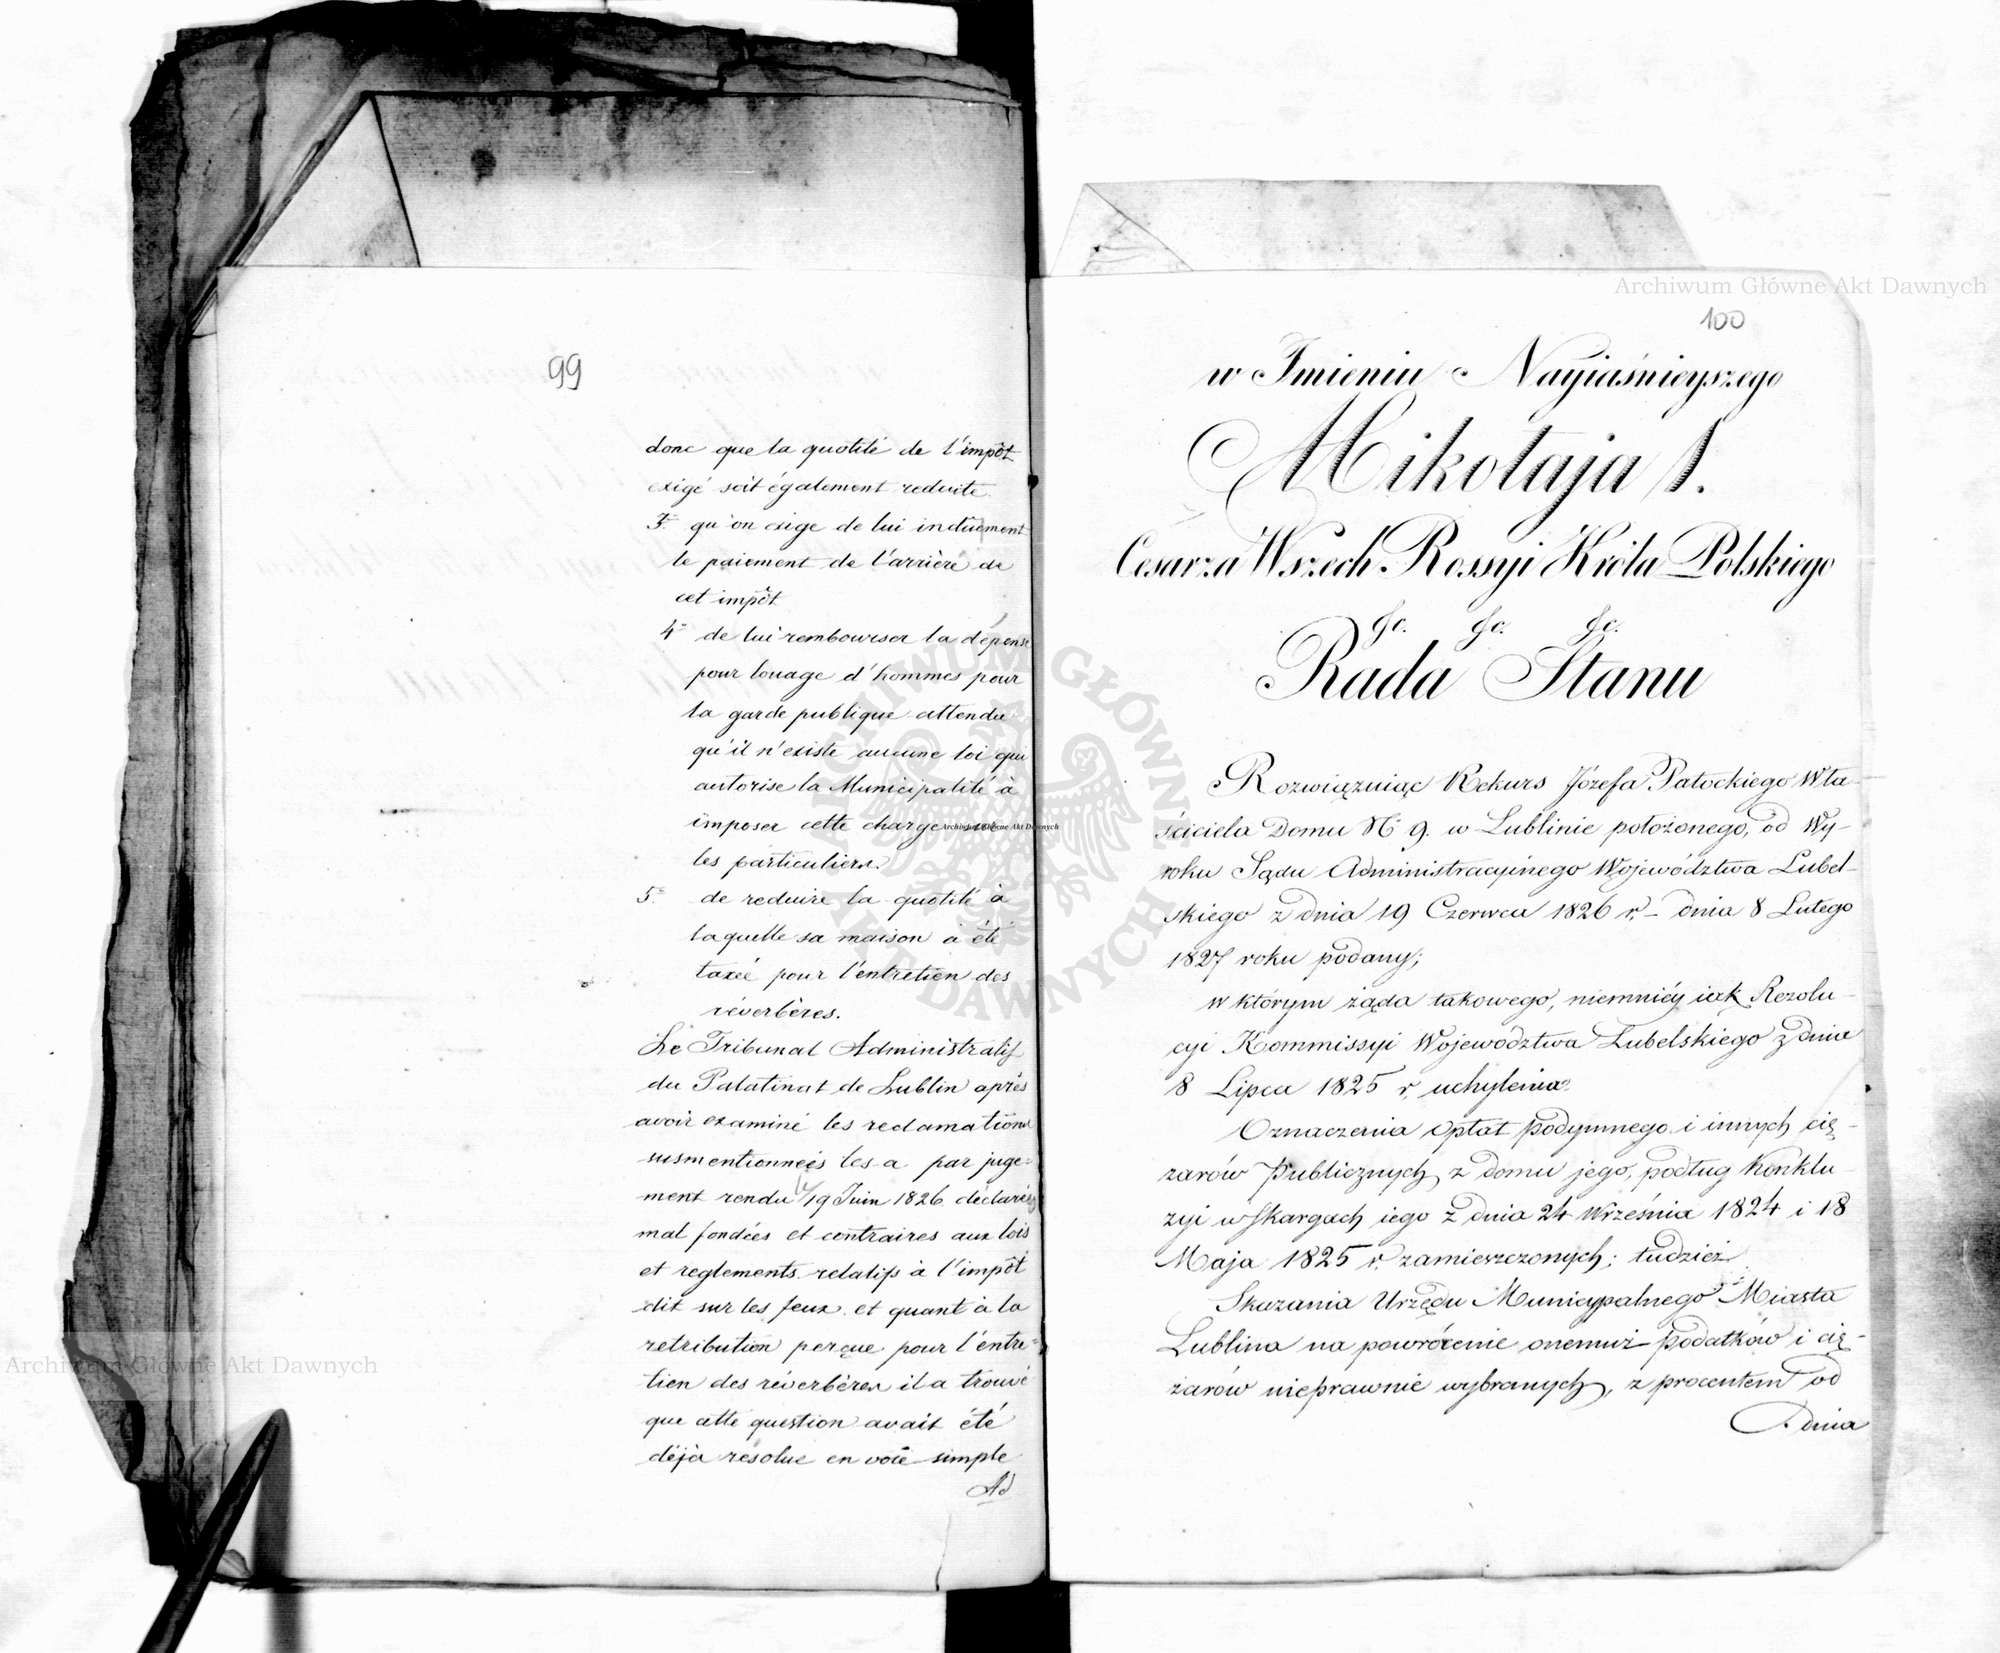 99
donc que la quotité de l'impôt
exigé soit également reduite.
3° qu'on exige de lui indûement
le paiement de l'arrière de
cet impôt
4° de lui rembourser la dépense
pour louage d'hommes pour
la garde publique attendu
qu'il n'existe aucune loi qui
autorise la Municipalité à
imposer cette charge
les particuliers.
5° de reduire la quotité à
laquelle sa maison a été
taxée pour l'entretien des
réverbères.
Le Tribunal Administratif
du Palatinat de Lublin après
avoir examiné les reclamations
susmentionneés les a par juge=
ment rendu le 19 Juin 1826 déclarés
mal fondées et contraires aux lois
et reglements relatifs à l'impôt
dit sur les feux et quant à la
retribution perçue pour l'entre=
tien des réverbères il a trouvé
que cette question avait été
déjà résolue en voie simple
Ad
100
w Imieniu Nayiaśnieyszego
Mikołaja I.
Cesarza Wszech Rossyi Króla Polskiego
&c. &c. &c.
Rada Stanu
Rozwiązuiąc Rekurs Józefa Patockiego Wła-
ściciela Domu N° 9. w Lublinie położonego, od Wy-
roku Sądu Administracyinego Województwa Lubel-
skiego z dnia 19 Czerwca 1826 r. – dnia 8 Lutego
1827 roku podany;
w którym żąda takowego, niemniéy iak Rezolu-
cyi Kommissyi Województwa Lubelskiego z dnia
8 Lipca 1825 r. uchylenia.
Oznaczenia opłat podymnego i innych cię-
żarów Publicznych z domu jego, podług Konklu-
zyi w skargach iego z dnia 24 Września 1824 i 18
Maja 1825 r. zamieszczonych; tudzież
Skazania Urzędu Municypalnego Miasta
Lublina na powrócenie onemuż podatków i cię-
żarów nieprawnie wybranych, z procentem od
dnia
Archiwum Główne Akt Dawnych
Archiwum Główne Akt Dawnych
Archiwum Główne Akt Dawnych
ARCHIWUM GŁÓWNE AKT DAWNYCH